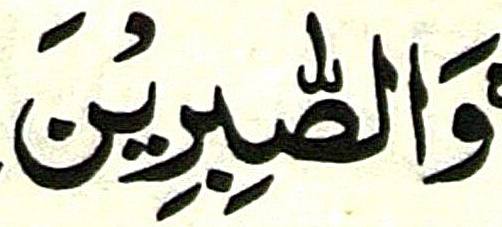 وَالصّٰبِرِيْنَ